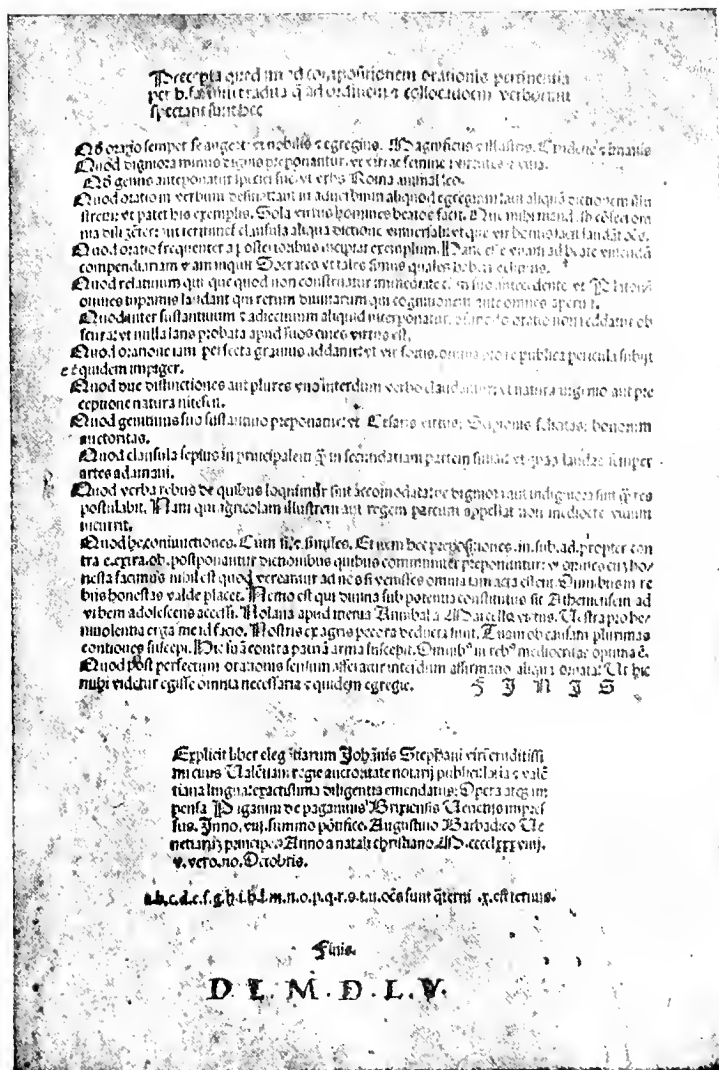 Precepta quedam ad compositionem orationis pertinentia
per b. tradita q̃ ad ordinem ⁊ collocationem verborum
spectant sunt hec
oratio semper se augeat vt nobilis ⁊ egregius. Magnificus ⁊ illustris.
Quod digniora minus dignis preponantur. vt viri ac femine
genus anteponatur speciei sue. vt vrbs Roma animal leo.
Quod orationem verbum definat aut in aduerbium aliquod egregium aut aliquã dictionem illu
strem: vt patet his exemplis. Sola virtus homines beatos facit.
nia aut terminet clausula aliqua dictione vniuersali: vt que vir bonus facit laudãt oẽs.
Quod oratio frequenter a posterioribus incipiat exemplum. Hanc esse viam ad beate viuendũ
compendiariam ⁊ am inquit Socrates vt tales simus quales haberi cupimus.
Quod relatiuum qui que quod non construatur immediate cũ suo antecedente. vt Platonẽ
omnes laudant qui rerum diuinarum cognitionem ante omnes aperuit.
Quod inter sustantiuum ⁊ adiectiuum aliquid interponatur. oratio non reddatur ob
scura: vt nulla laus probata apud suos ciues virtus est.
Quod oratione iam perfecta grauius addatur vt vir fortis. omnia pro re publica pericula subijt
et quidem impiger.
Quod due distinctiones aut plures vno interdum verbo claudantur: vt natura ingenio aut pre
ceptione natura nitesut.
Quod genitiuus suo sustantiuo preponatur: vt Cesaris virtus: Scipionis felicitas: bonorum
auctoritas.
Quod clausula sepius in principalem q̃ in secundariam partem finiat vt quas laudas semper
artes adamaui.
Quod verba rebus de quibus loquimur sint accomodata: ne digniora aut indigniora sint q̃ res
postulabit. Nam qui agricolam illustrem aut regem parcum appellat non mediocre vitium
incurrit.
Quod he coniunctiones. Cum si. ⁊ similes. Et item hec prepositiones. in. sub. ad. propter con
tra e. extra. ob. postponantur dictionibus quibus comuniter preponantur: vt omnes cum ho
nesta facimus nihil est quod vereamur ad nos si venisses omnia iam acta essent. Omnibus in re
bus honestas valde placet. Nemo est qui diuina sub potentia constitutus sit Atheniensem ad
vrbem adolescens accessi. Nolana apud menia Annibal a Marcello victus. Uestra pro be
niuolentia erga me id facio. Nostris ex agris pecora deducta sunt. Tuam ob causam plurimas
contiones suscepi. Hic suã contra patriã arma suscepit. Omnib⁹ in reb⁹ mediocritas optima ẽ.
Quod post perfectum orationis sensum afferatur interdum affirmatio aliqua ornata: Ut hic
mihi videtur egisse omnia necessaria ⁊ quidem egregie. F I N I S
Explicit liber elegãtiarum Johãnis Stephani viri eruditissi
mi ciuis Ualẽtiani regie auctoritate notarij publici: latia ⁊ valẽ
tiana lingua: exactissima diligentia emendatus: Opera atq; im
pensa Paganini de paganinis Brixiensis Uenetijs impres
sus. Inno. viij. summo põtifice. Augustino Barbadico Ue
netiarũ principe: Anno a natali christiano .M.cccclxxxviiij.
v. vero .no. Octobris.
a.b.c.d.e.f.g.h.i.k.l.m.n.o.p.q.r.s.t.u. oẽs sunt q̃terni .x. est ternus.
Finis.
D L . M . D . L . V .